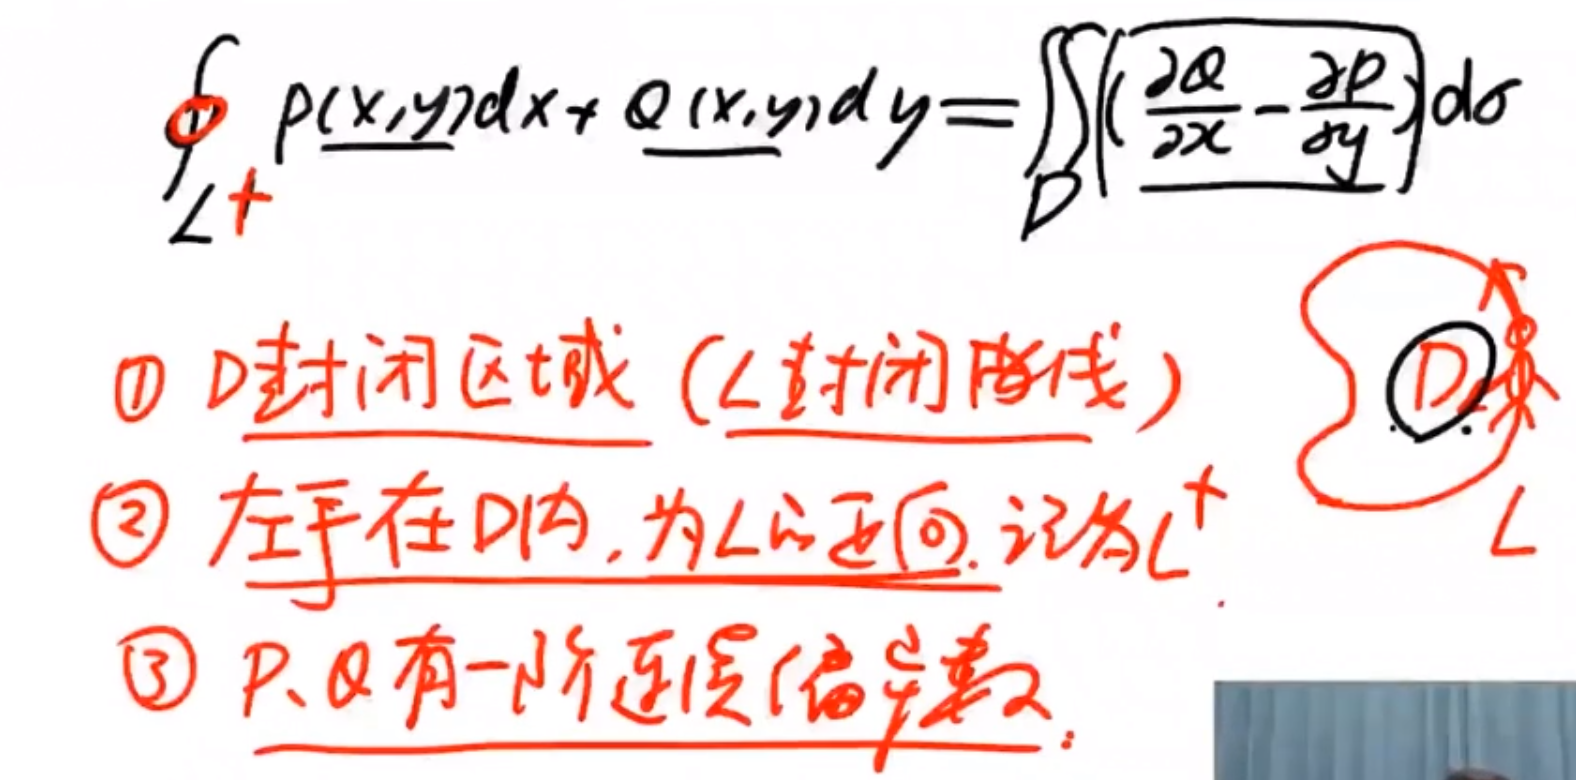 ∮_{L⁺} P(x,y)dx + Q(x,y)dy = ∬_D (∂Q/∂x − ∂P/∂y) dσ
① D封闭区域 (L封闭曲线)
② 左手在D内,为L的正向.记为L⁺
③ P、Q有一阶连续偏导数.
D
L